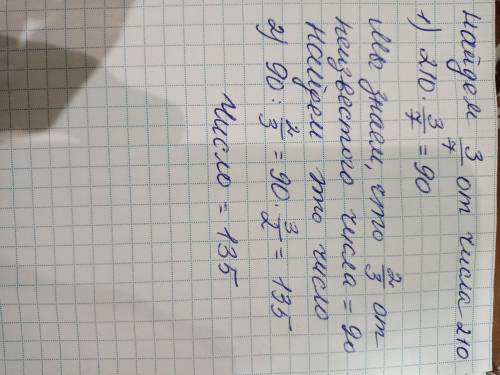 Найдем 3/7 от числа 210
1) 210 · 3/7 = 90
Мы знаем, что 2/3 от
неизвестого числа = 90
Найдем это число
2) 90 : 2/3 = 90 · 3/2 = 135
Число = 135